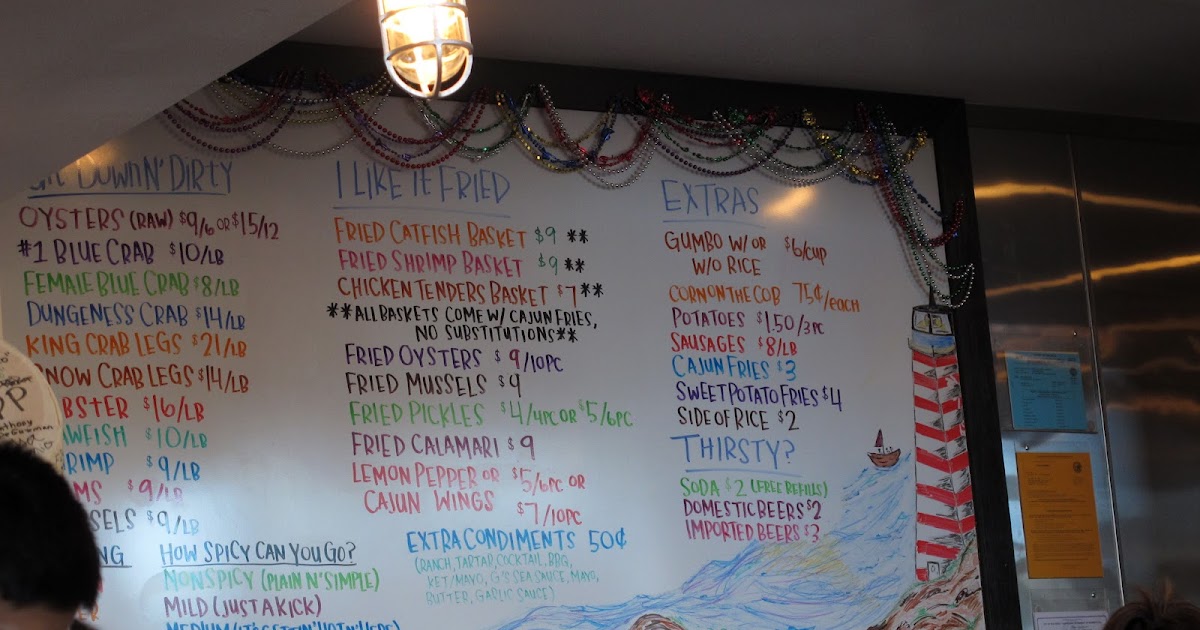 DOWN N' DIRTY
OYSTERS (RAW) $9/6 OR $15/12
#1 BLUE CRAB $10/LB
FEMALE BLUE CRAB $8/LB
DUNGENESS CRAB $14/LB
KING CRAB LEGS $21/LB
SNOW CRAB LEGS $14/LB
LOBSTER $16/LB
$10/LB
$9/LB
$9/LB
$9/LB
HOW SPICY CAN YOU GO?
NON SPICY (PLAIN N' SIMPLE)
MILD (JUST A KICK)
I LIKE IT FRIED
FRIED CATFISH BASKET $9 **
FRIED SHRIMP BASKET $9 **
CHICKEN TENDERS BASKET $7 **
**ALL BASKETS COME W/ CAJUN FRIES,
NO SUBSTITUTIONS**
FRIED OYSTERS $9/10PC
FRIED MUSSELS $9
FRIED PICKLES $4/4PC OR $5/6PC
FRIED CALAMARI $9
LEMON PEPPER OR $5/6PC OR
CAJUN WINGS $7/10PC
EXTRA CONDIMENTS 50¢
(RANCH, TARTAR, COCKTAIL, BBQ,
KET/MAYO, G'S SEA SAUCE, MAYO,
BUTTER, GARLIC SAUCE)
EXTRAS
GUMBO W/ OR $6/CUP
W/O RICE
CORN ON THE COB 75¢/EACH
POTATOES $1.50/3PC
SAUSAGES $8/LB
CAJUN FRIES $3
SWEET POTATO FRIES $4
SIDE OF RICE $2
THIRSTY?
SODA $2 (FREE REFILLS)
DOMESTIC BEERS $2
IMPORTED BEERS $3